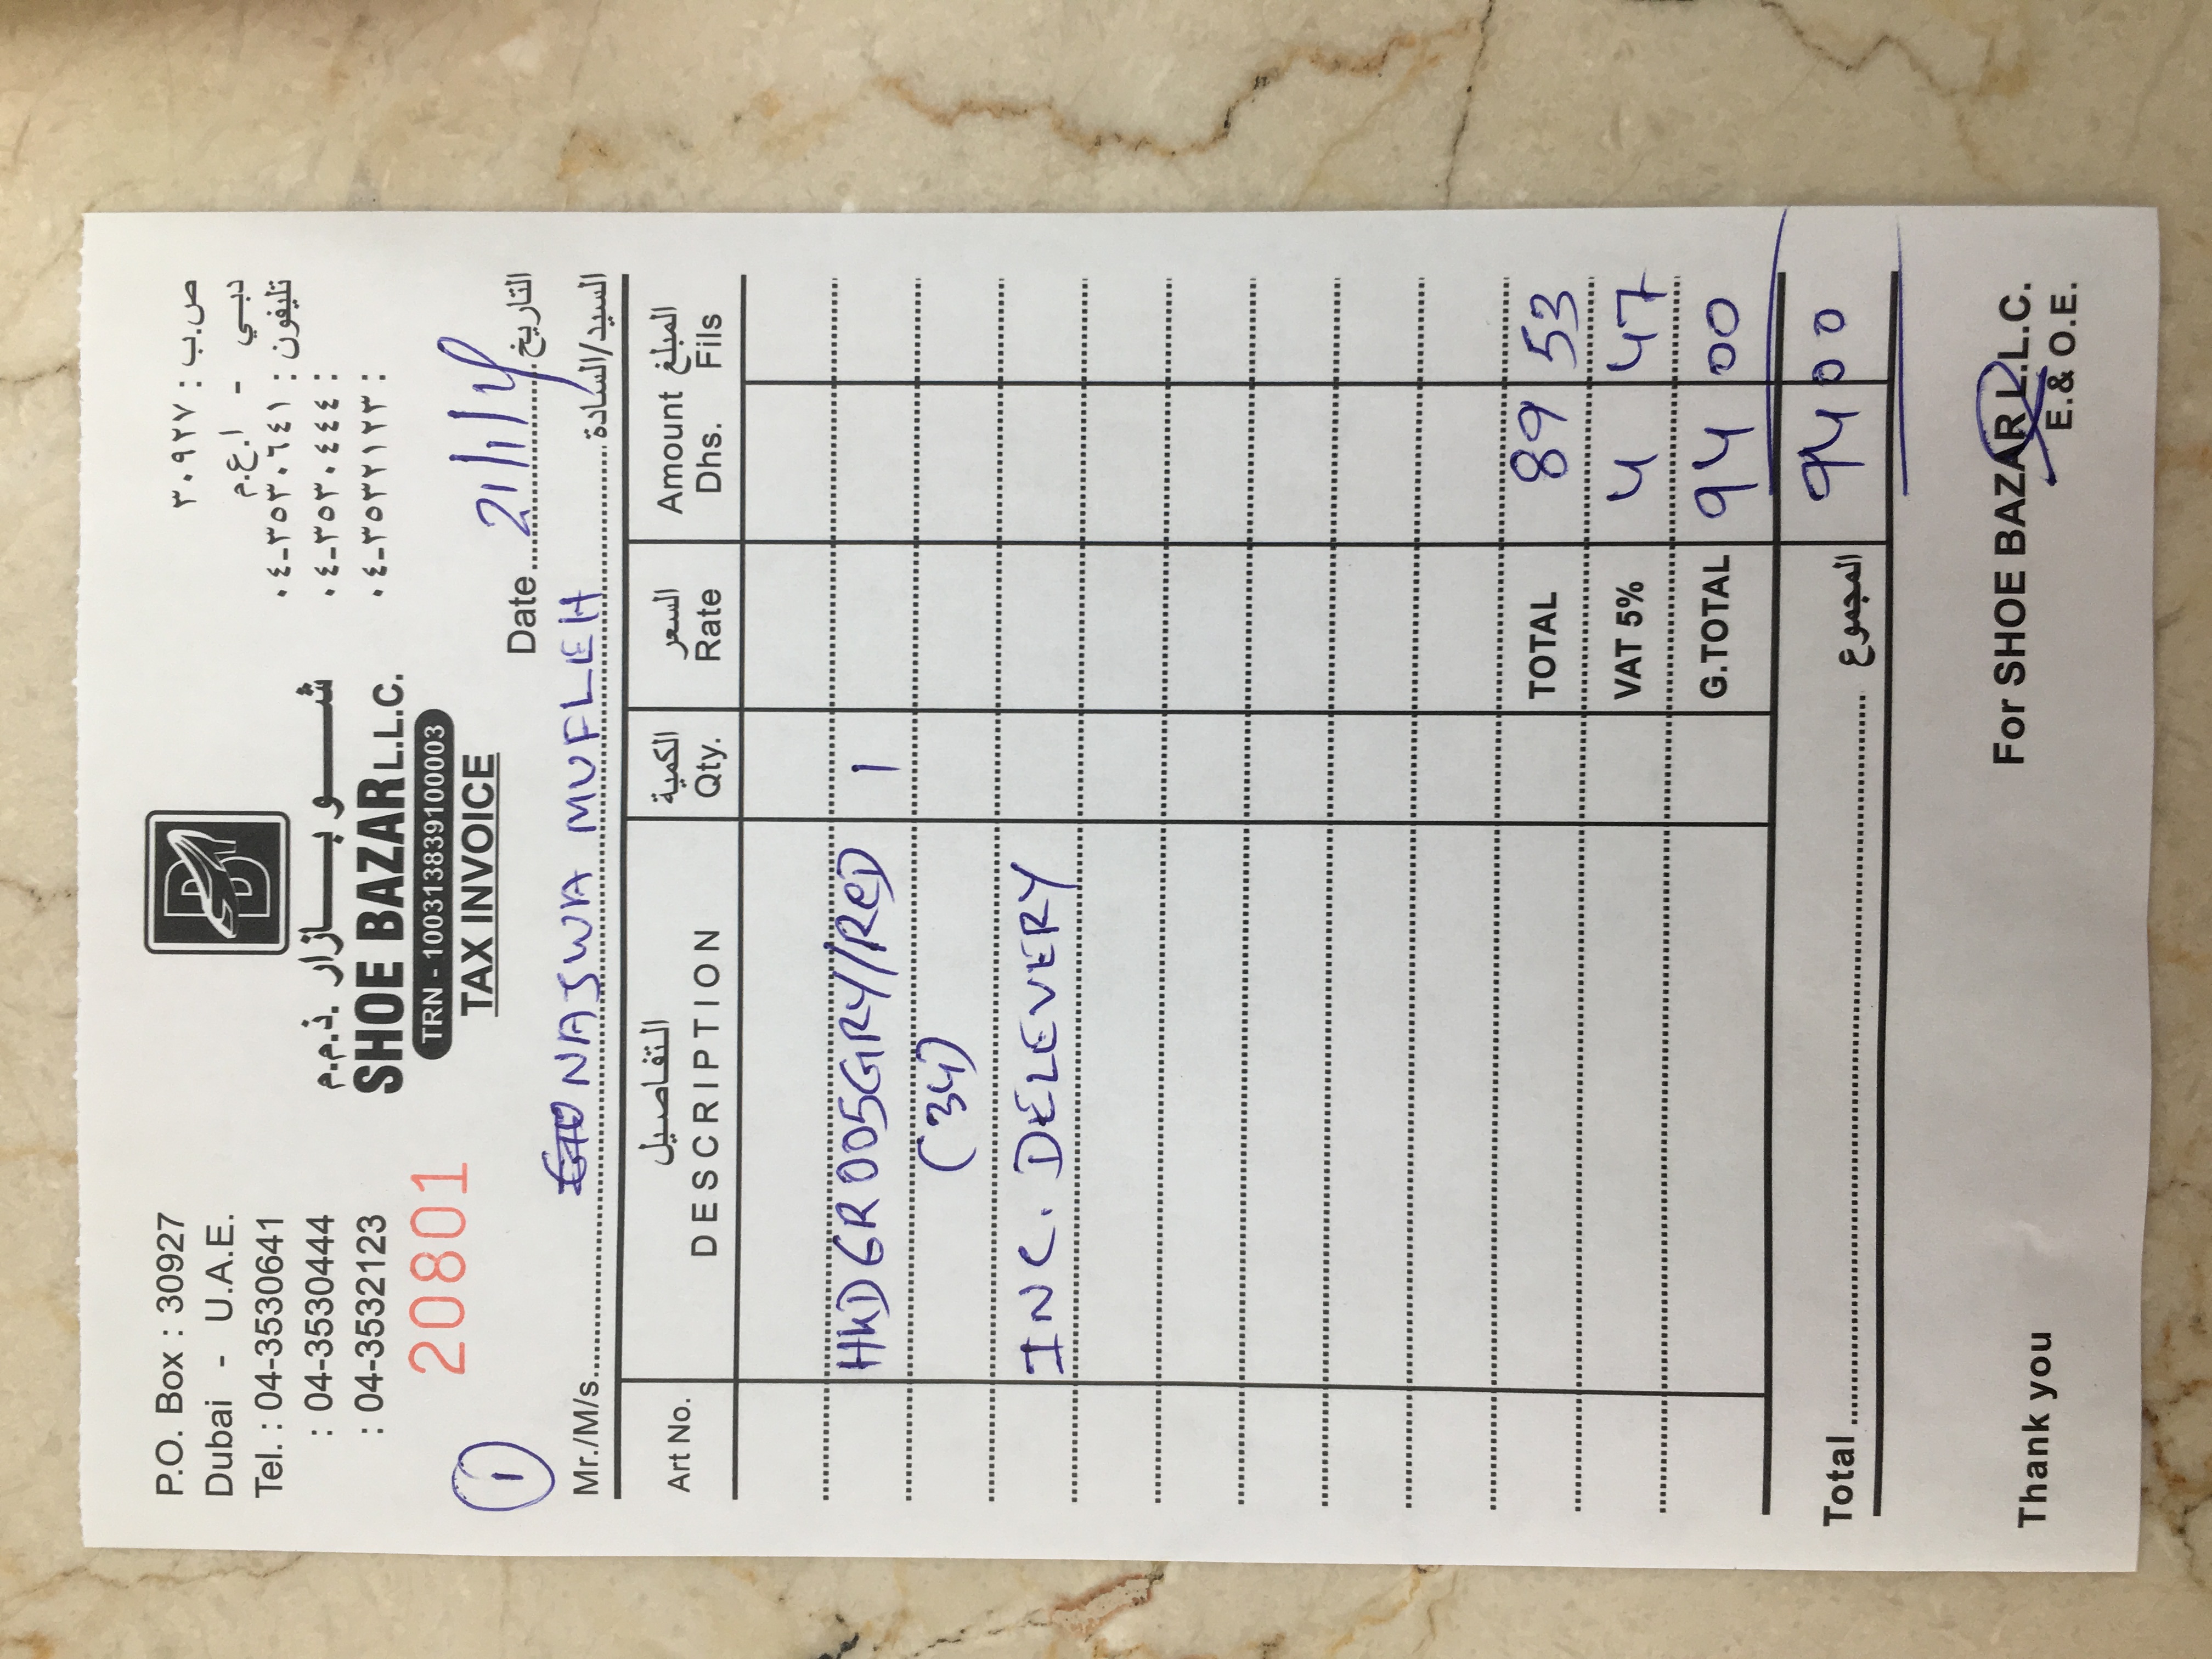 P.O. Box : 30927
Dubai - U.A.E.
Tel. : 04-3530641
: 04-3530444
: 04-3532123
20801
شو بازار ذ.م.م.
SHOE BAZAR L.L.C.
TRN - 100313839100003
TAX INVOICE
ص.ب : ٣٠٩٢٧
دبي - ا.ع.م
تليفون : ٠٤-٣٥٣٠٦٤١
: ٠٤-٣٥٣٠٤٤٤
: ٠٤-٣٥٣٢١٢٣
1
Date 21/1/ التاريخ
Mr./M/s. NAJWA MUFLEH السيد/السادة
Art No. التفاصيل DESCRIPTION الكمية Qty. السعر Rate Amount المبلغ Dhs. Fils
HKDGR005GRY/RED 1
(34)
INC. DELEVERY
TOTAL 89 53
VAT 5% 4 47
G.TOTAL 94 00
Total المجموع 94 00
Thank you For SHOE BAZAR L.L.C.
E.& O.E.